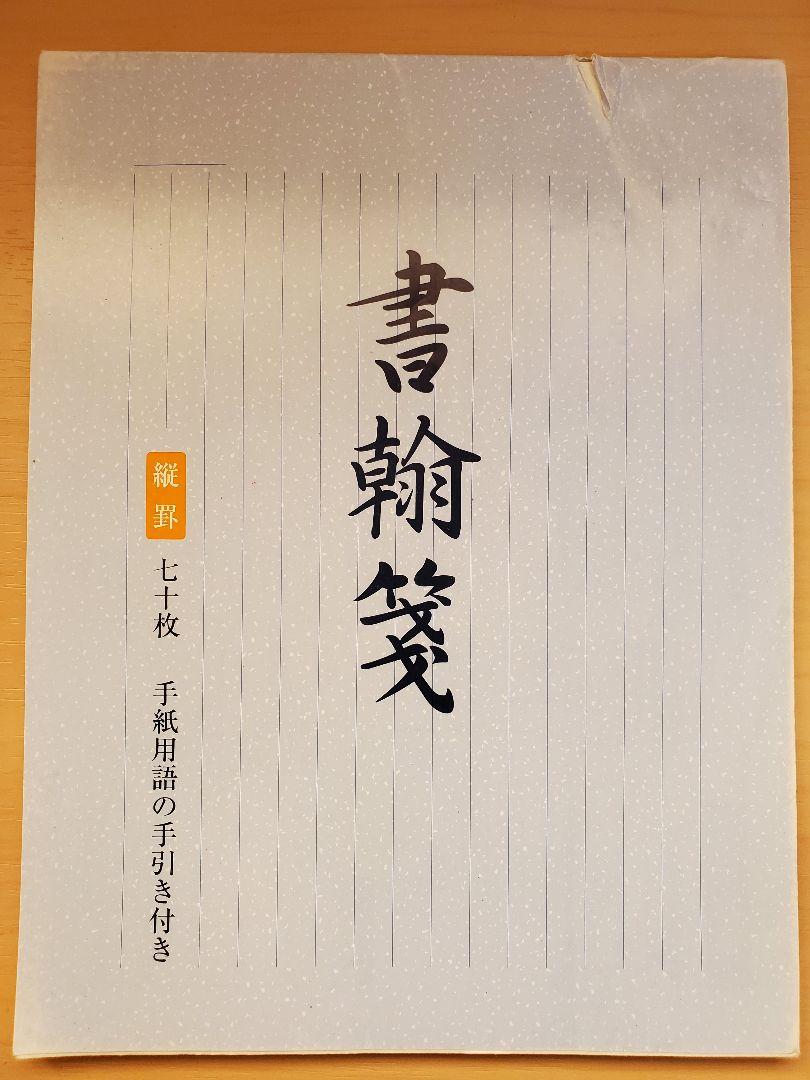 書翰箋
縦罫
七十枚 手紙用語の手引き付き